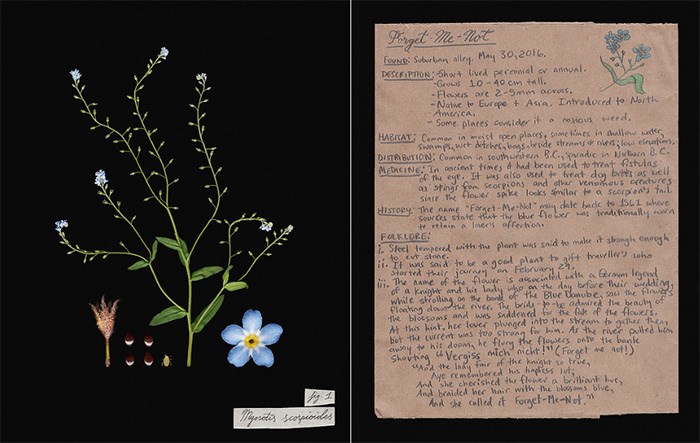 fig. 1
Myosotis scorpioides
Forget-Me-Not
FOUND: Suburban alley. May 30, 2016.
DESCRIPTION: -Short lived perennial or annual.
-Grows 10-40 cm tall.
-Flowers are 2-9mm across.
-Native to Europe + Asia. Introduced to North
America.
-Some places consider it a noxious weed.
HABITAT: Common in moist open places, sometimes in shallow water,
swamps, wet ditches, bogs, beside streams or rivers; low elevation.
DISTRIBUTION: Common in southwestern B.C., sporadic in Northern B.C.
MEDICINE: In ancient times it had been used to treat fistulas
of the eye. It was also used to treat dog bites as well
as stings from scorpions and other venomous creatures
since the flower spike looks similar to a scorpion's tail.
HISTORY: The name "Forget-Me-Not" may date back to 1561 where
sources state that the blue flower was traditionally worn
to retain a lover's affection.
FOLKLORE:
i. Steel tempered with the plant was said to make it strong enough
to cut stone.
ii. It was said to be a good plant to gift travellers who
started their journey on February 29.
iii. The name of the flower is associated with a German legend
of a knight and his lady who on the day before their wedding,
while strolling on the bank of the Blue Danube, saw the flowers
floating down the river. The bride-to-be admired the beauty of
the blossoms and was saddened for the fate of the flowers.
At this hint, her lover plunged into the stream to gather them
but the current was too strong for him. As the river pulled him
away to his doom, he flung the flowers onto the bank
shouting "Vergiss mich nicht!" (Forget me not!)
"And the lady fair of the knight so true,
Aye remembered his hapless lot;
And she cherished the flower a brilliant hue,
And braided her hair with the blossoms blue,
And she called it Forget-Me-Not."